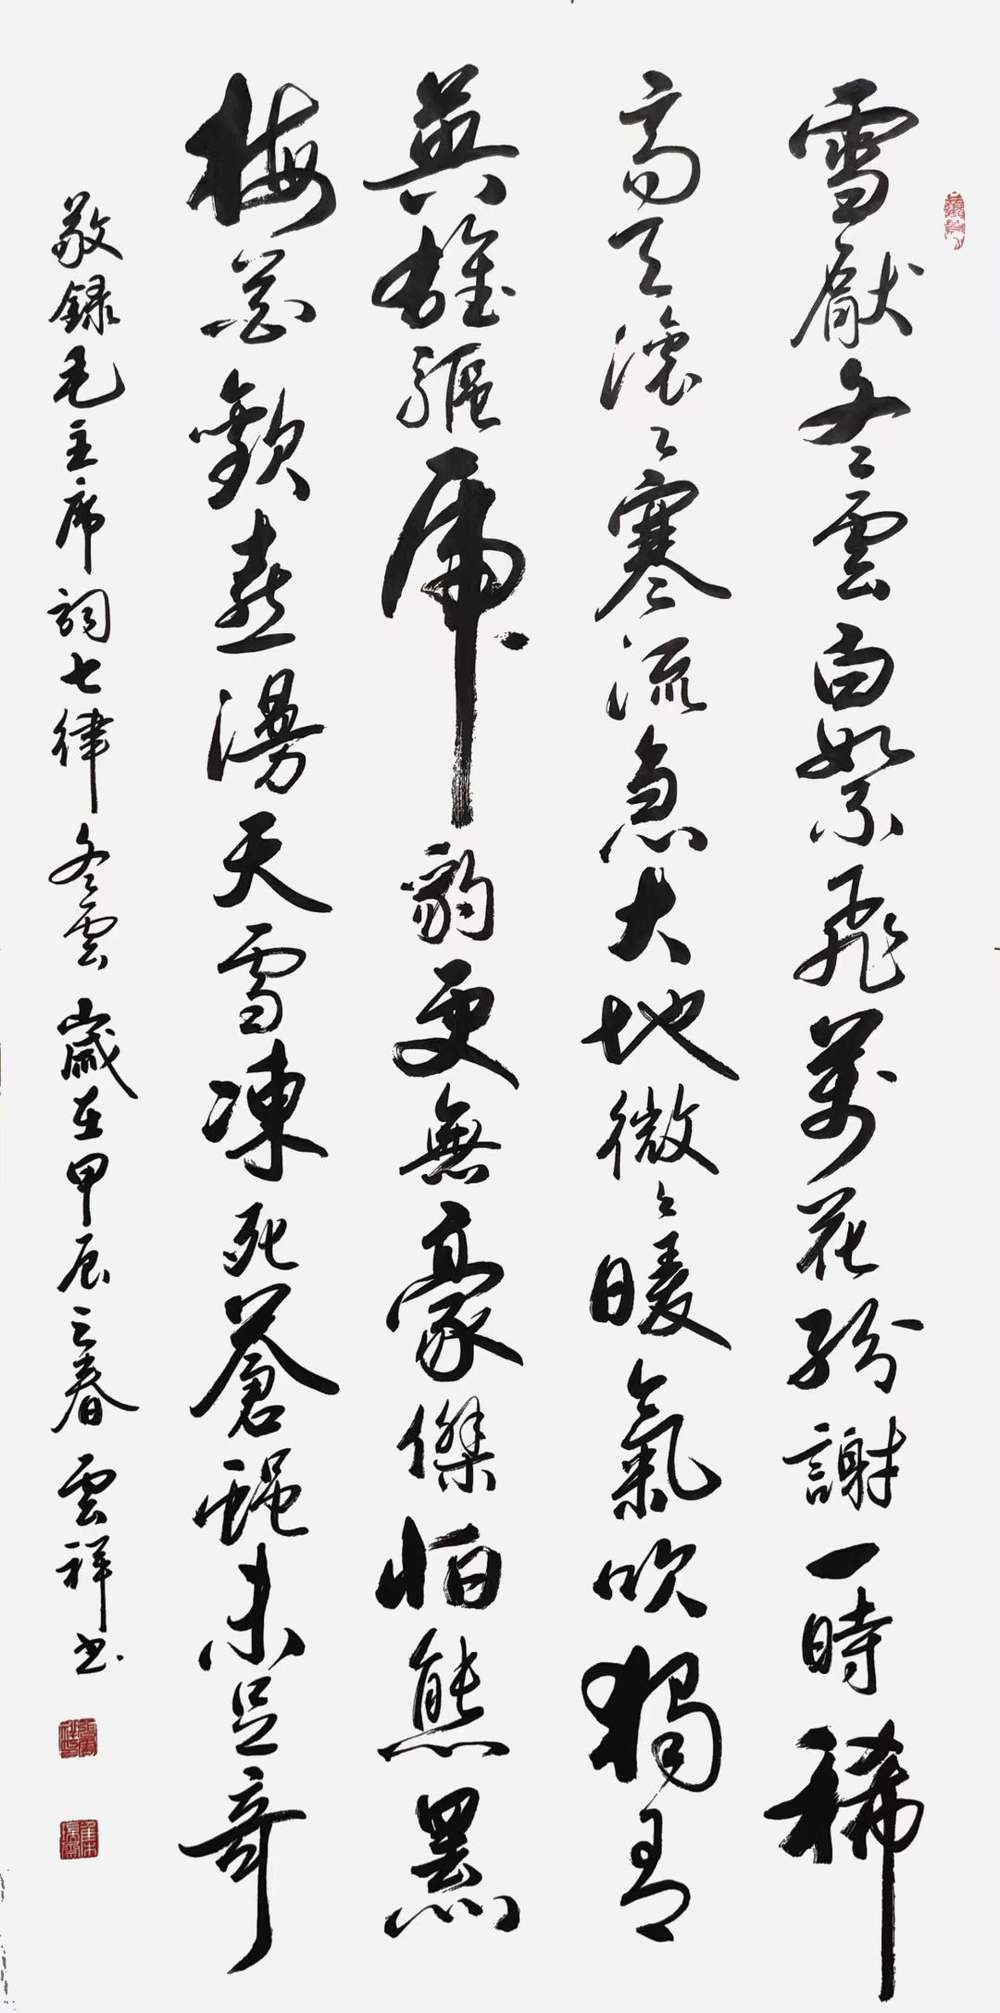 雪厭冬雲白絮飛萬花紛謝一時稀
高天滾〻寒流急大地微〻暖氣吹獨有
英雄驅虎豹更無豪傑怕熊羆
梅花歡喜漫天雪凍死蒼蠅未足奇
敬錄毛主席詞七律冬雲 歲在甲辰之春 雲祥書